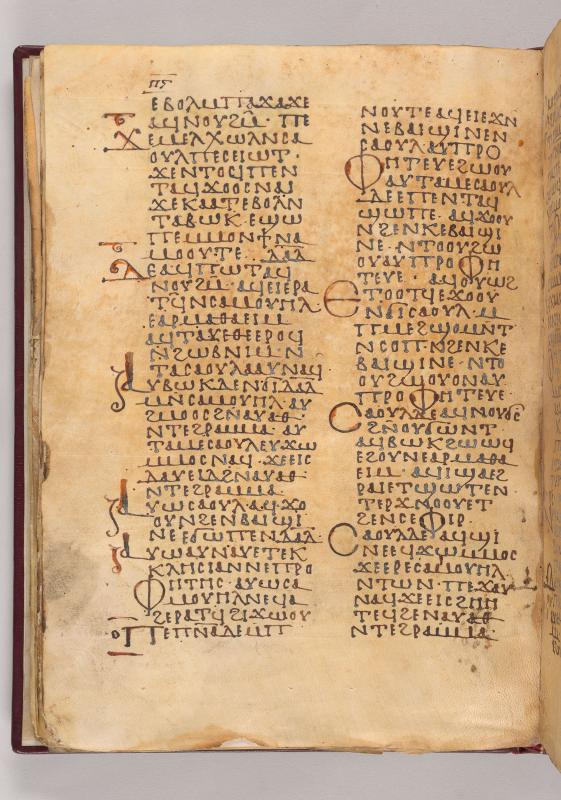 ⲡⲋ
ⲉⲃⲟⲗⲙⲡⲁϫⲁϫⲉ
ⲁϥⲛⲟⲩϩⲙ̅· ⲡⲉ
ϫⲉⲙⲉⲗⲭⲱⲗⲛⲥⲁ
ⲟⲩⲗⲡⲉⲥⲉⲓⲱⲧ·
ϫⲉⲛⲧⲟϥⲡⲉⲛ
ⲧⲁϥϫⲟⲟⲥⲛⲁⲓ
ϫⲉⲕⲁⲁⲧⲉⲃⲟⲗⲛ̅
ⲧⲁⲃⲱⲕ·ⲉϣⲱ
ⲡⲉⲙⲙⲟⲛϯⲛⲁ
ⲙⲟⲟⲩⲧⲉ· ⲇⲁⲇ
ⲇⲉⲁϥⲡⲱⲧⲁϥ
ⲛⲟⲩϩⲙ·ⲁϥⲉⲓⲉⲣⲁ
ⲧϥⲛⲥⲁⲙⲟⲩⲏⲗ
ⲉⲁⲣⲙⲁⲑⲁⲉⲓⲙ
ⲁϥⲧⲁⲩⲉⲑⲉⲉⲣⲟϥ
ⲛϩⲱⲃⲛⲓⲙ·ⲛ
ⲧⲁⲥⲁⲟⲩⲗⲁⲁⲩⲛⲁϥ
ⲁⲩⲃⲱⲕⲇⲉⲛϭⲓⲇⲁⲇ
ⲙⲛⲥⲁⲙⲟⲩⲏⲗ·ⲁⲩ
ϩⲙⲟⲟⲥϩⲛⲁⲩⲁⲑ
ⲛⲧⲉϩⲣⲁⲙⲁ·ⲁⲩ
ⲧⲁⲙⲉⲥⲁⲟⲩⲗⲉⲩϫⲱ
ⲙⲙⲟⲥⲛⲁϥ·ϫⲉⲉⲓⲥ
ⲇⲁⲩⲉⲓⲇϩⲛⲁⲩⲁⲑ
ⲛⲧⲉϩⲣⲁⲙⲙⲁ·
ⲁⲩⲱⲥⲁⲟⲩⲗ·ⲁϥϫⲟ
ⲟⲩⲛϩⲉⲛⲃⲁⲓϣⲓ
ⲛⲉⲉϭⲱⲡⲉⲛⲇⲁⲇ·
ⲁⲩⲱⲁⲩⲛⲁⲩⲉⲧⲉⲕ
ⲕⲗⲏⲥⲓⲁⲛⲛⲉⲡⲣⲟ
ⲫⲏⲧⲏⲥ·ⲁⲩⲱⲥⲁ
ⲙⲟⲩⲏⲗⲛⲉϥⲁ
ϩⲉⲣⲁⲧϥϩⲓϫⲱⲟⲩ
ⲡⲉⲡⲛⲁⲇⲉⲙⲡ
ⲛⲟⲩⲧⲉⲁϥⲉⲓⲉϫⲛ
ⲛⲉⲃⲁⲓϣⲓⲛⲉⲛ
ⲥⲁⲟⲩⲗⲁⲩⲡⲣⲟ
ⲫⲏⲧⲉⲩⲉϩⲱⲟⲩ
ⲁⲩⲧⲁⲙⲉⲥⲁⲟⲩⲗ
ⲇⲉⲉⲡⲉⲛⲧⲁϥ
ϣⲱⲡⲉ·ⲁϥϫⲟⲟⲩ
ⲛϩⲉⲛⲕⲉⲃⲁⲓϣⲓ
ⲛⲉ·ⲛⲧⲟⲟⲩϩⲱ
ⲟⲩⲁⲩⲡⲣⲟⲫⲏ
ⲧⲉⲩⲉ·ⲁϥⲟⲩⲱϩ
ⲉⲧⲟⲟⲧϥⲉϫⲟⲟⲩ
ⲛϭⲓⲥⲁⲟⲩⲗ·ⲙ
ⲡⲙⲉϩϣⲟⲙⲛⲧ
ⲛⲥⲟⲡ·ⲛϩⲉⲛⲕⲉ
ⲃⲁⲓϣⲓⲛⲉ·ⲛⲧⲟ
ⲟⲩϩⲱⲟⲩⲟⲛⲁⲩ
ⲡⲣⲟⲫⲏⲧⲉⲩⲉ·
ⲥⲁⲟⲩⲗⲇⲉⲁϥⲛⲟⲩϭⲥ
ϩⲛⲟⲩϭⲱⲛⲧ
ⲁϥⲃⲱⲕϩⲱⲱϥ
ⲉϩⲟⲩⲛⲉⲁⲣⲙⲁⲑⲁ
ⲉⲓⲙ·ⲁϥⲓϣⲁⲉϩ
ⲣⲁⲓⲉⲧϣⲱⲧⲉⲛ
ⲧⲉⲣϫⲛⲟⲟⲩⲉⲧ
ϩⲉⲛⲥⲉⲫⲓⲣ·
ⲥⲁⲟⲩⲗⲇⲉⲁϥϣⲓ
ⲛⲉⲉϥϫⲱⲙⲙⲟⲥ
ϫⲉⲉⲣⲉⲥⲁⲙⲟⲩⲏⲗ
ⲛⲧⲱⲛ·ⲡⲉϫⲁⲩ
ⲛⲁϥϫⲉⲉⲓⲥϩⲏⲏ
ⲧⲉϥϩⲉⲛⲁⲩⲁⲑ
ⲛⲧⲉϩⲣⲁⲙⲙⲁ·